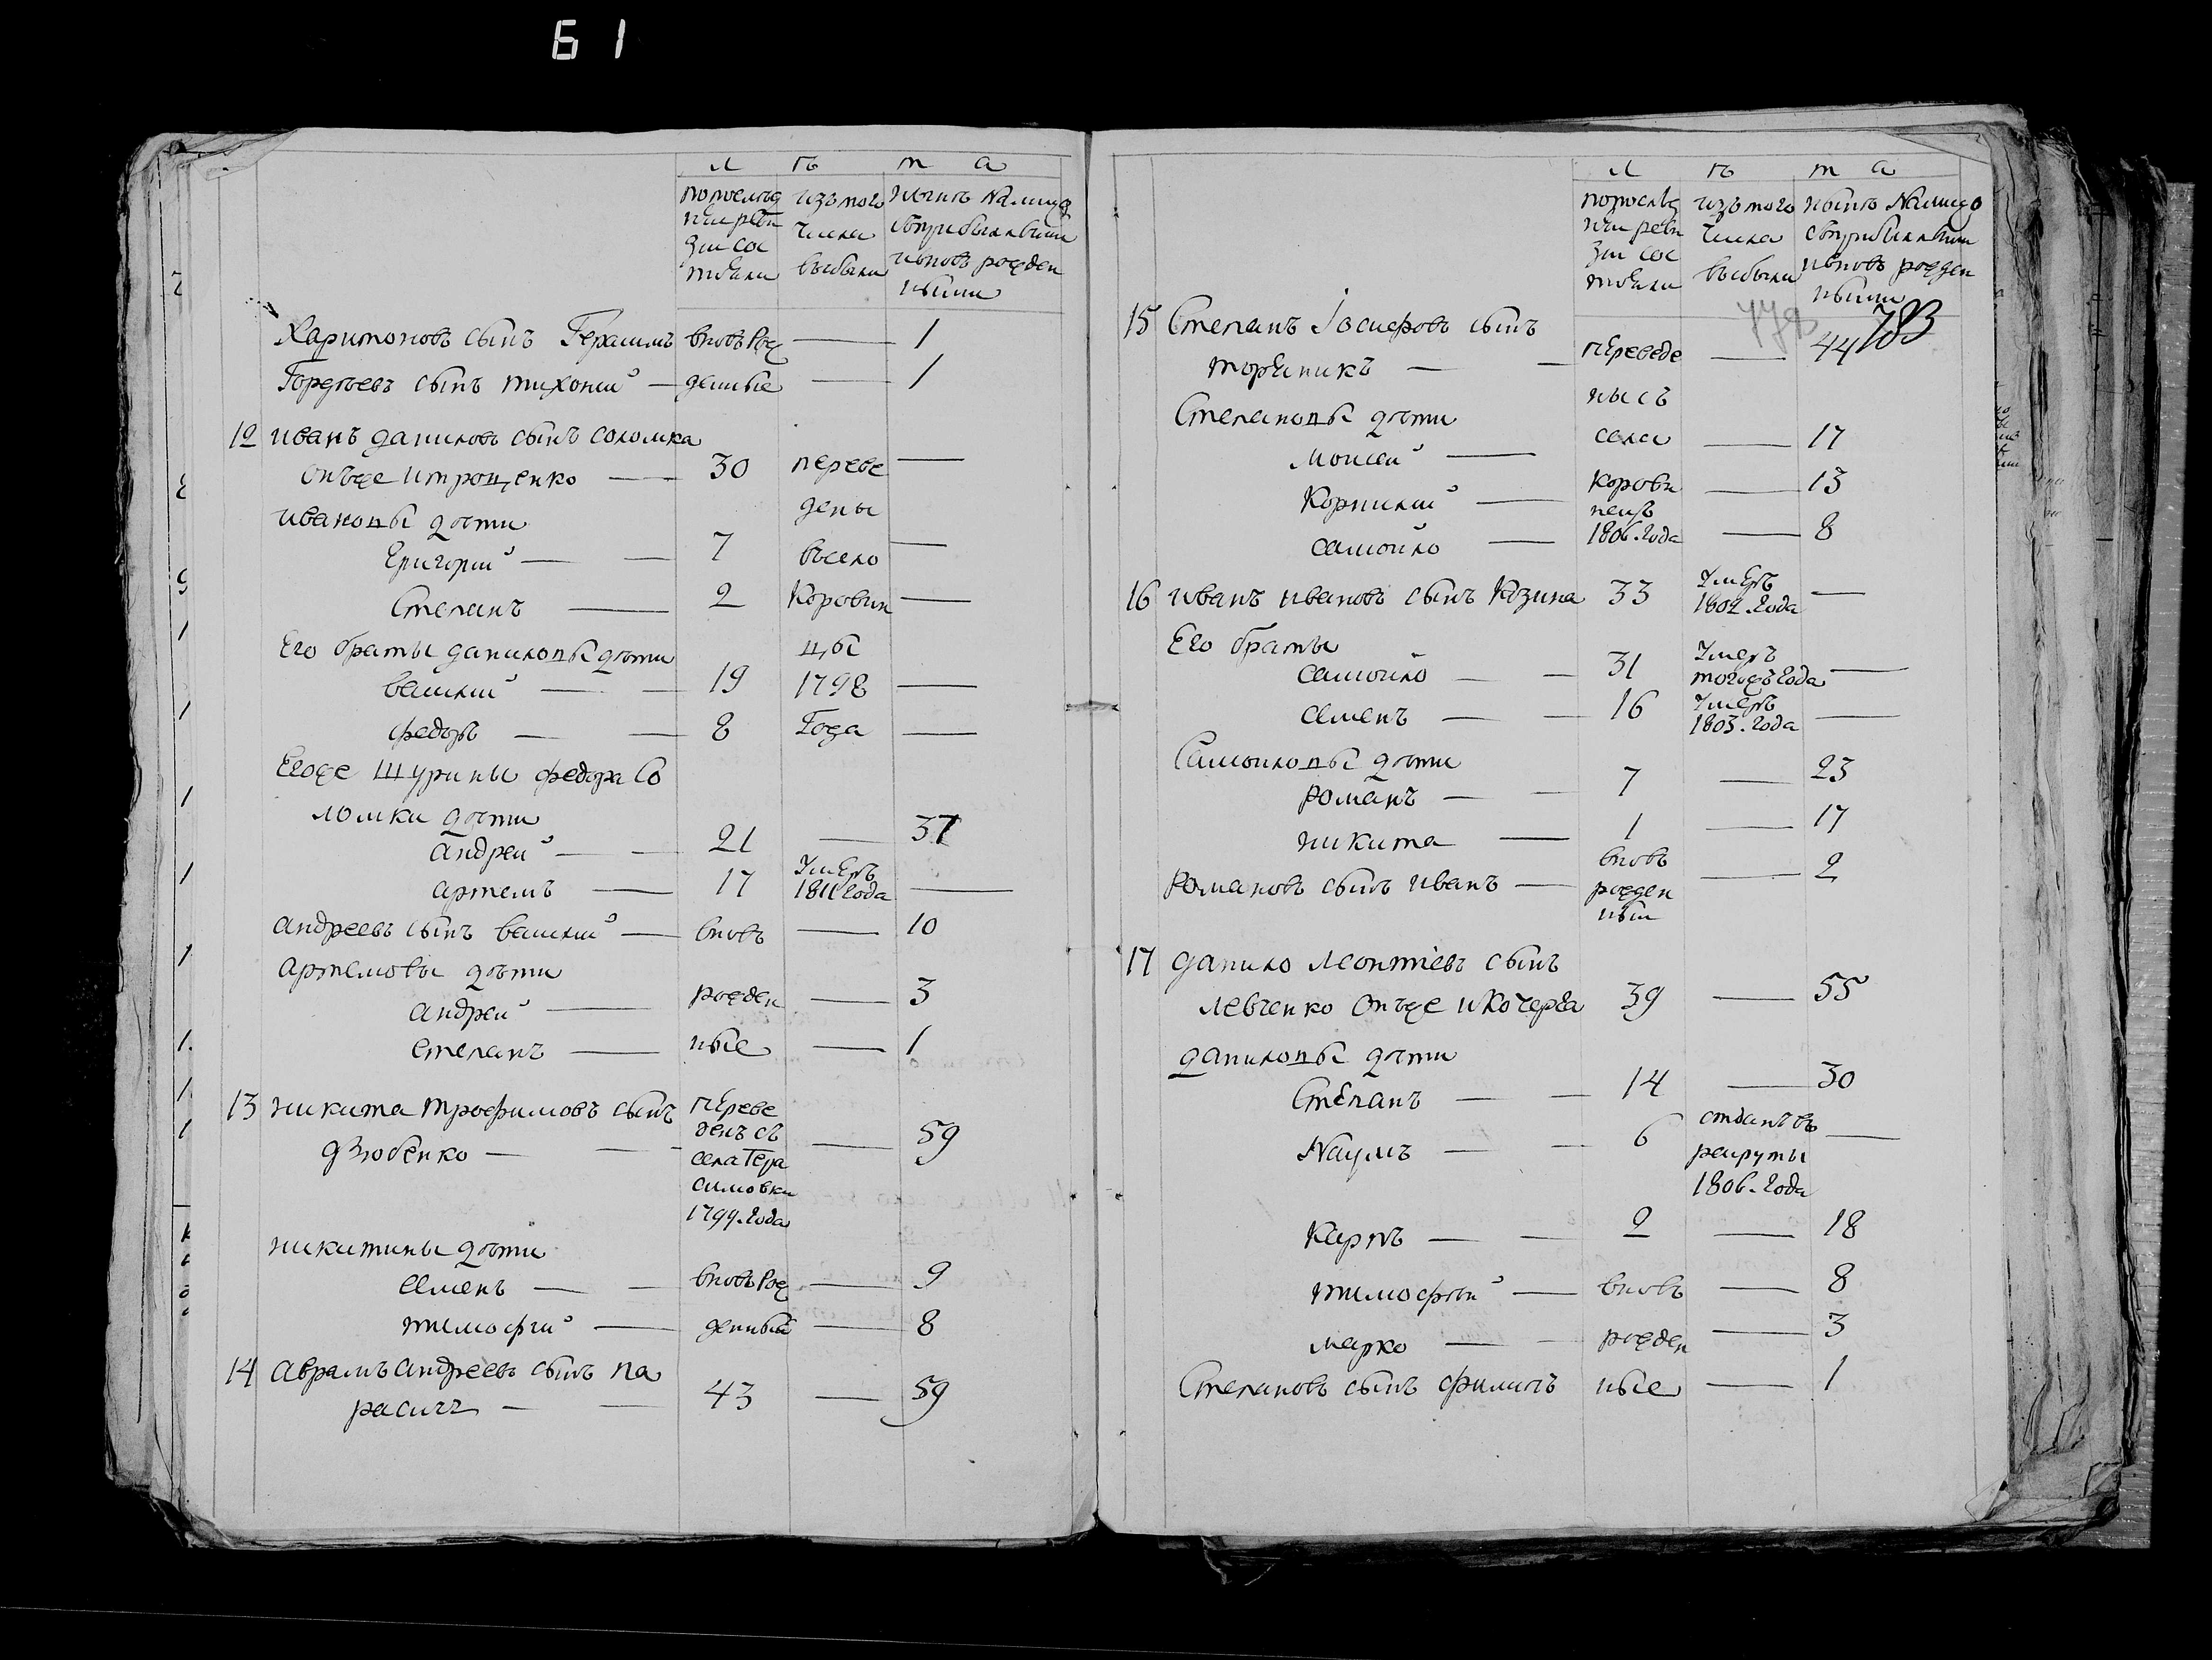 61
Л ѣ т а
попослѣд
ней реви
зіи сос
тояли
изъ того
числа
выбыли
нынѣ налицо
съприбылыми
ивновь рожден
ными
Харитоновъ сынъ Герасимъ вновь Рож — 1
Гордѣевъ сынъ тихонъ — денные — 1
12 иванъ даниловъ сынъ соломка
онъже итрощенко — 30 переве —
ивановы дѣти дены
Григорий — 7 въсело —
Степанъ — 2 Коровин —
Его браты даниловы дѣти цы
василий — 19 1798 —
федоръ — 8 Года —
Егоже шурины федора Со
ломки дѣти
андрей — 21 — 37
артемъ — 17 Умеръ 1811 года —
андреевъ сынъ василий — вновь — 10
артемовы дѣти
андрей — рожден — 3
степанъ — ные — 1
13 никита трофимовъ сынъ переве
дзюбенко — денъ съ — 59
села Гера
симовки
1799. года
никитины дѣти
семенъ — вновь Рож — 9
тимофей — денный — 8
14 аврамъ андреевъ сынъ па
расичъ — 43 — 59
Л ѣ т а
попослѣд
ней реви
зіи сос
тояли
изъ того
числа
выбыли
нынѣ налицо
съприбылыми
ивновь рожден
ными
783
15 Степанъ Іосифовъ сынъ
торяникъ — переведе — 44
Степановы дѣти ны съ
моисей — села — 17
Корнилий — Корови — 13
нецъ
самойло — 1806. года — 8
16 иванъ ивановъ сынъ Кузина 33 Умеръ 1802. года —
Его браты
самойло — 31 Умеръ тогожъ года —
семенъ — 16 Умеръ 1803. года —
Самойловы дѣти
романъ — 7 — 23
никита — 1 — 17
Романовъ сынъ иванъ — вновь — 2
рожден
ный
17 данило леонтіевъ сынъ
левченко онъже икочерга 39 — 55
даниловы дѣти
Степанъ — 14 — 30
Наумъ — 6 отданъ въ —
рекруты
1806. года
Карпъ — 2 — 18
тимофей — вновь — 8
марко — рожден — 3
Степановъ сынъ филипъ ные — 1